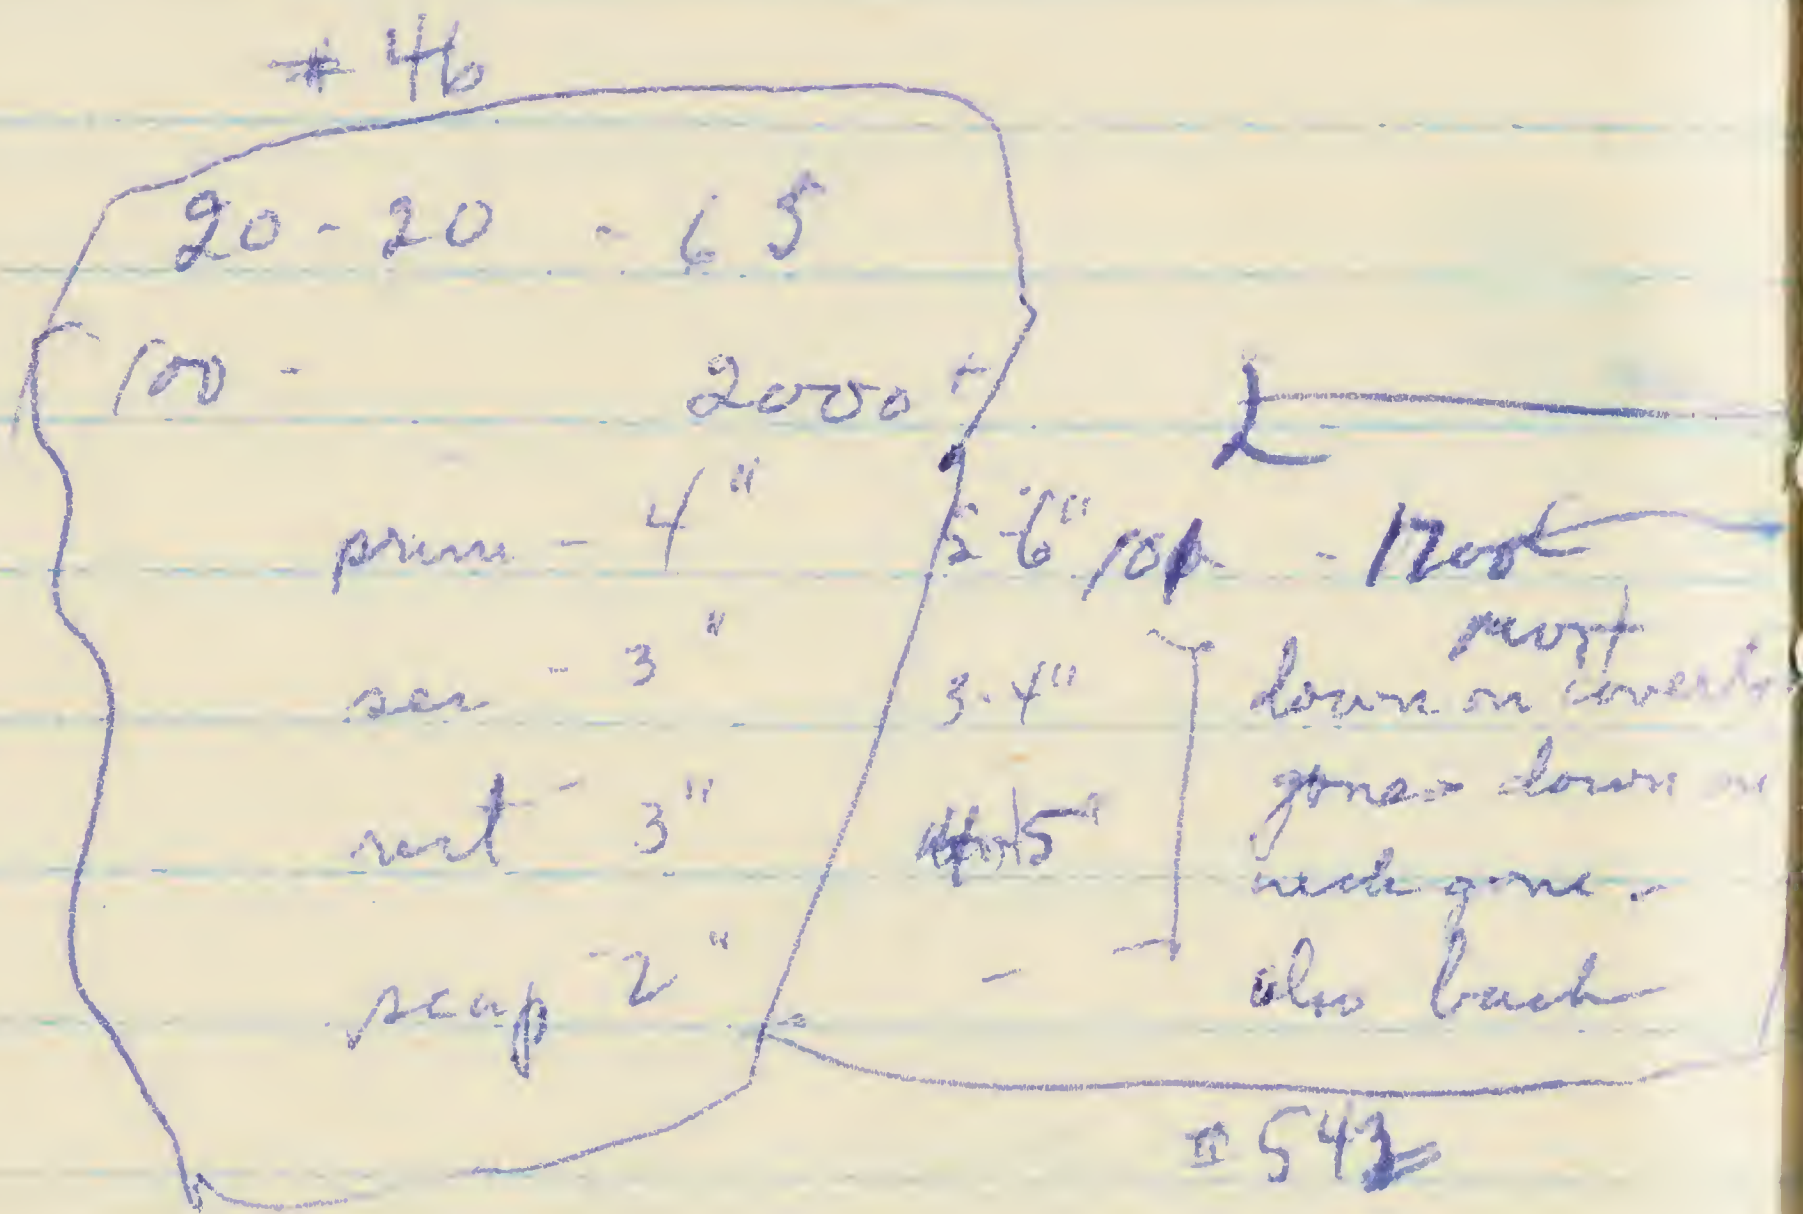 # 46
20 - 20 - 65
100 - 2000 +
prim - 4" 5-6"
sec - 3" 3-4" most
down on coverts
rect - 3" 5" gone - down on
neck gone -
scap - 2" - also back
# 543